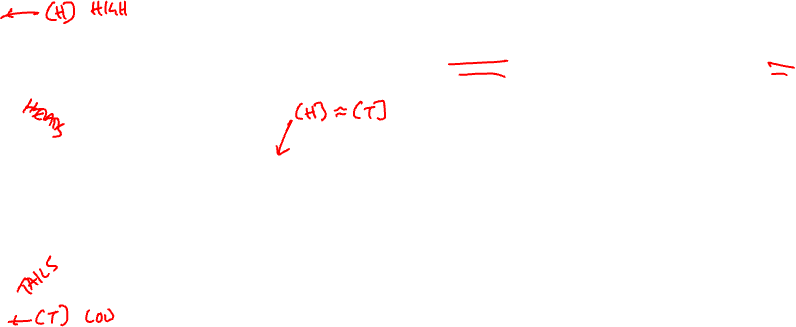 ← [H] HIGH
HEADS
[H] ≈ [T]
TAILS
← [T] LOW